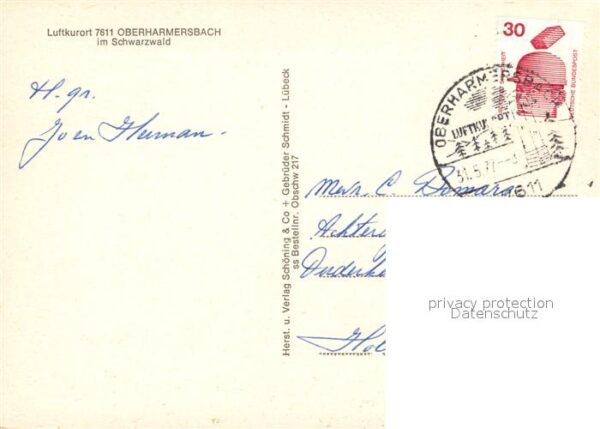 Luftkurort 7611 OBERHARMERSBACH
im Schwarzwald
H. gr.
Jo en Herman.
Herst. u. Verlag Schöning & Co + Gebrüder Schmidt - Lübeck
ss Bestellnr. Obschw 217
30
DEUTSCHE BUNDESPOST
OBERHARMERSBA
LUFTKURORT
31.5.77
7611
Mevr. C.
Achter
Ouderk
Hol
privacy protection
Datenschutz